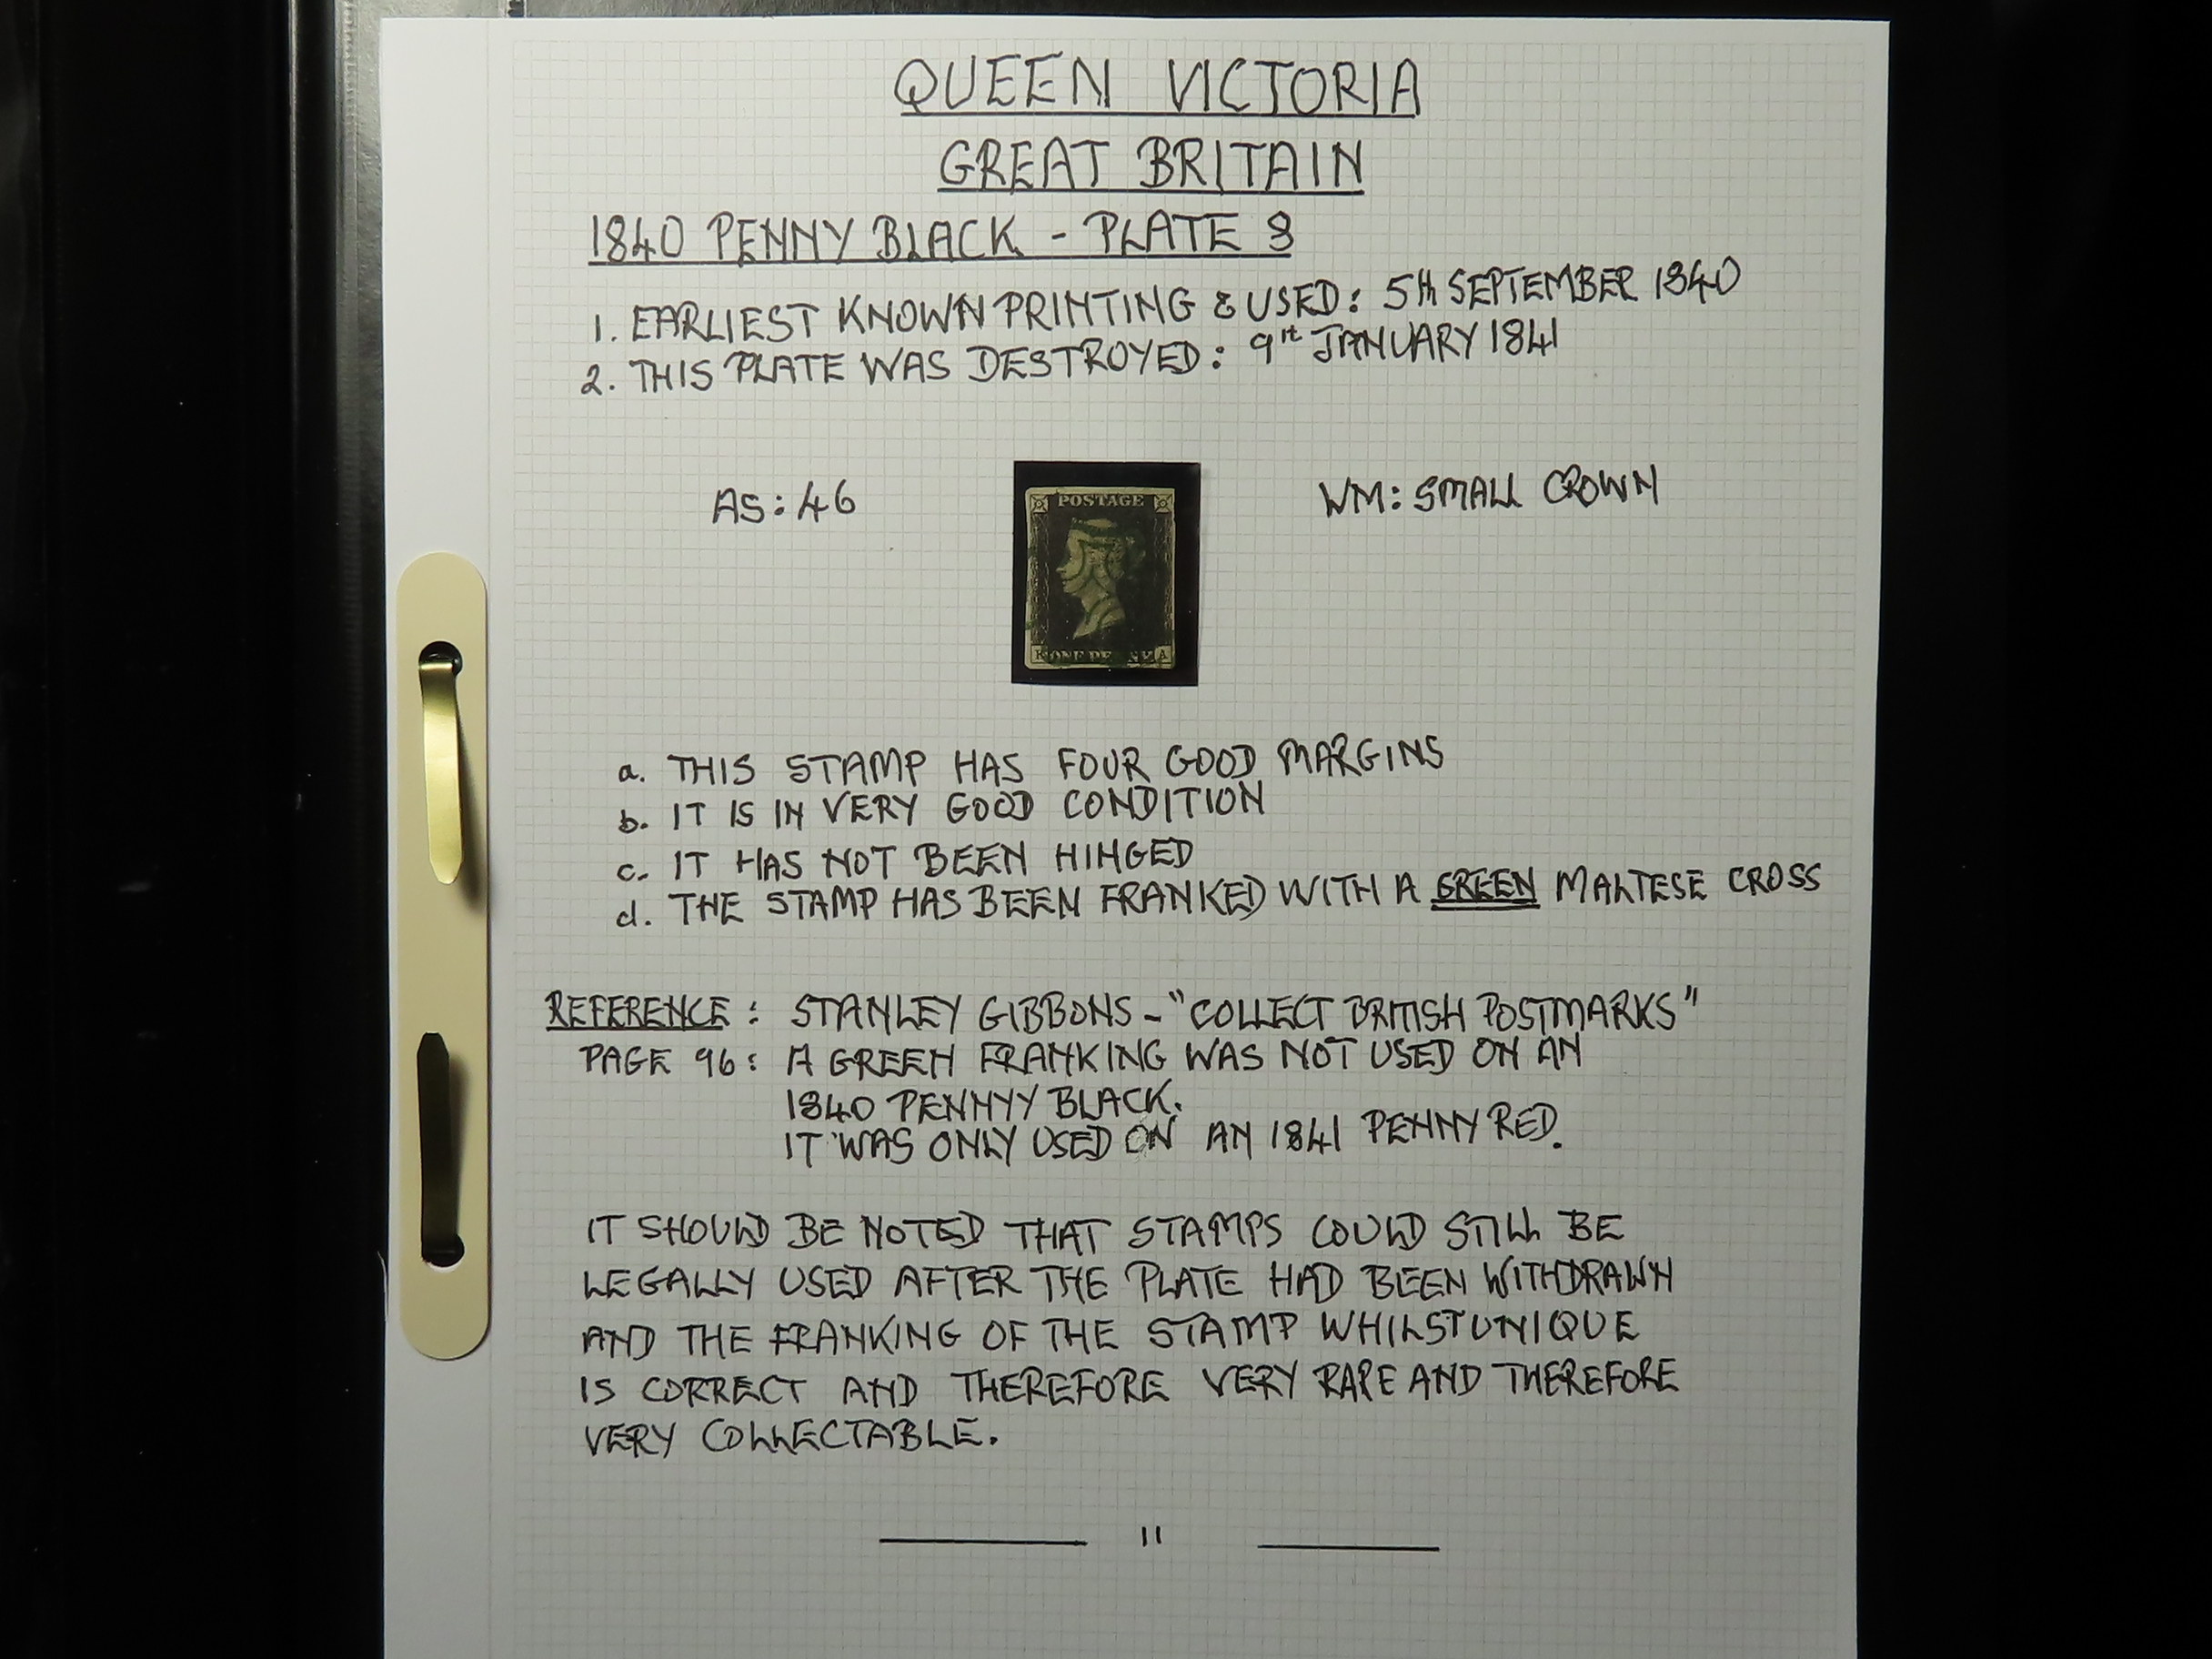 QUEEN VICTORIA
GREAT BRITAIN
1840 PENNY BLACK - PLATE 8
1. EARLIEST KNOWN PRINTING & USED: 5th SEPTEMBER 1840
2. THIS PLATE WAS DESTROYED: 9th JANUARY 1841
AS: 46
WM: SMALL CROWN
POSTAGE
K ONE PENNY A
a. THIS STAMP HAS FOUR GOOD MARGINS
b. IT IS IN VERY GOOD CONDITION
c. IT HAS NOT BEEN HINGED
d. THE STAMP HAS BEEN FRANKED WITH A GREEN MALTESE CROSS
REFERENCE: STANLEY GIBBONS - "COLLECT BRITISH POSTMARKS"
PAGE 96: A GREEN FRANKING WAS NOT USED ON AN
1840 PENNYY BLACK.
IT WAS ONLY USED ON AN 1841 PENNY RED.
IT SHOULD BE NOTED THAT STAMPS COULD STILL BE
LEGALLY USED AFTER THE PLATE HAD BEEN WITHDRAWN
AND THE FRANKING OF THE STAMP WHILST UNIQUE
IS CORRECT AND THEREFORE VERY RARE AND THEREFORE
VERY COLLECTABLE.
11